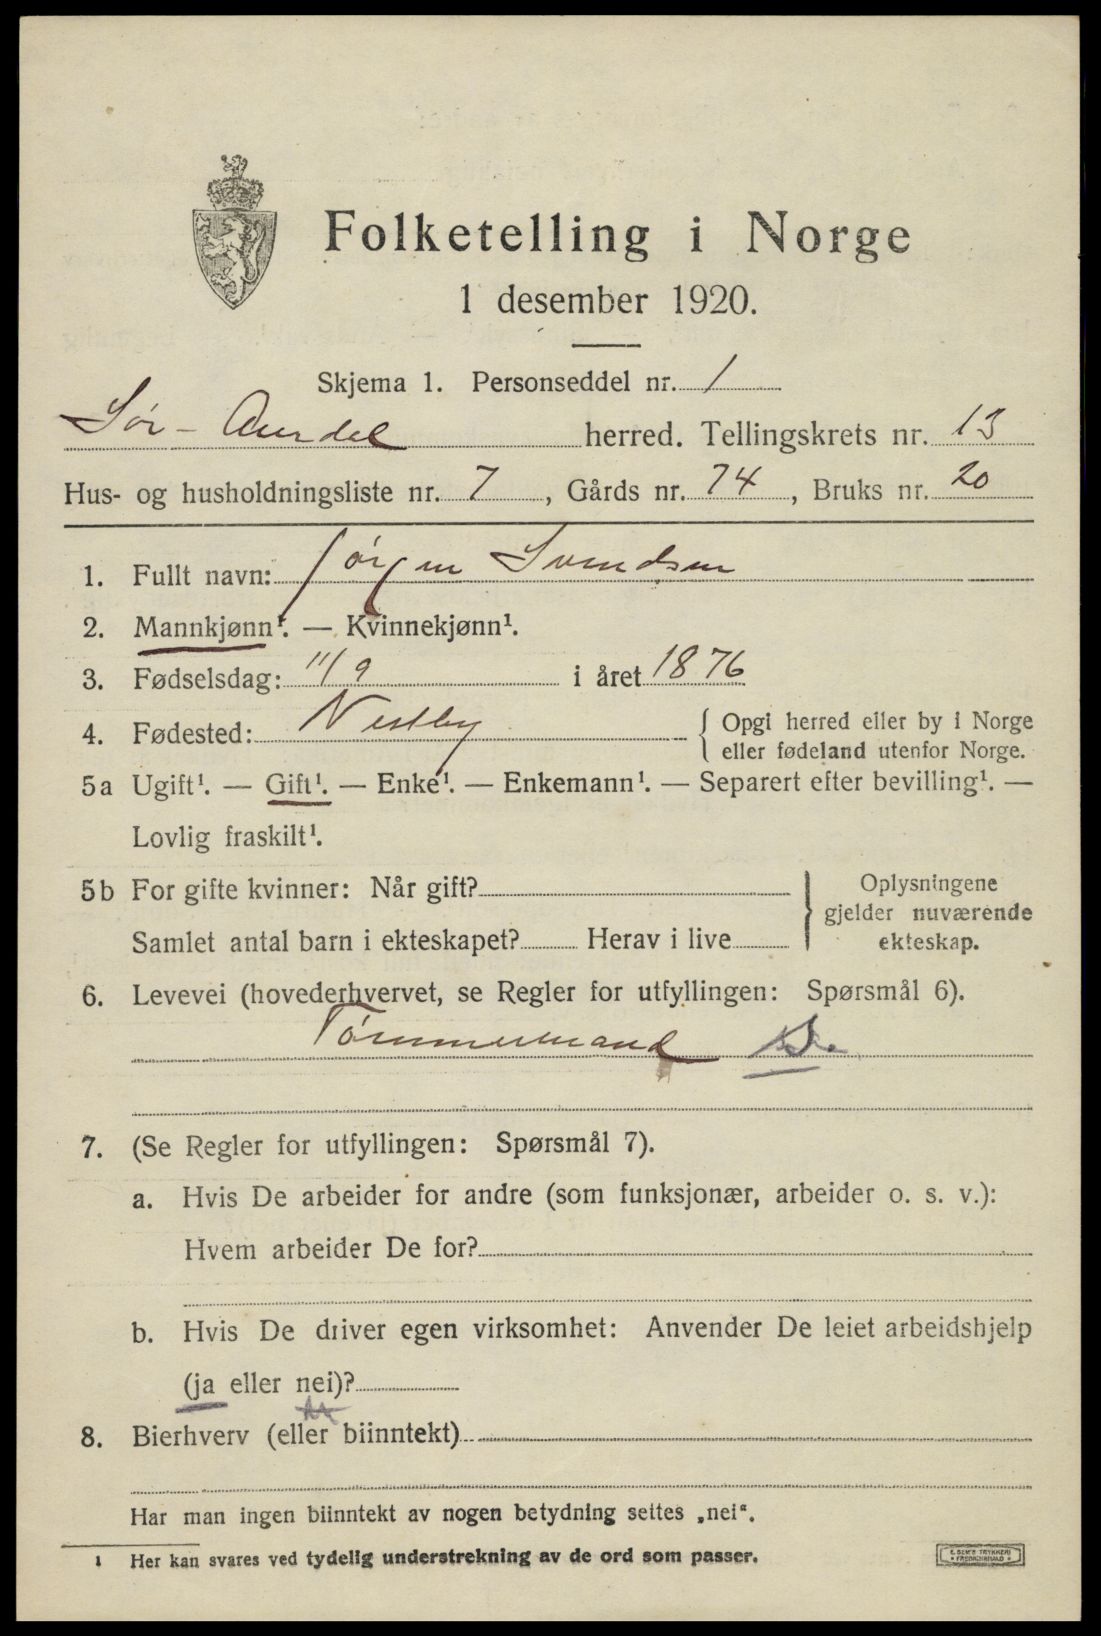 Folketelling i Norge
1 desember 1920.
Skjema 1. Personseddel nr. 1
Sør-Aurdal herred. Tellingskrets nr. 13
Hus- og husholdningsliste nr. 7, Gårds nr. 74, Bruks nr. 20
1. Fullt navn: Jørgen Svendsen
2. Mannkjønn¹. — Kvinnekjønn¹.
3. Fødselsdag: 11/9 i året 1876
4. Fødested: Vestby { Opgi herred eller by i Norge
eller fødeland utenfor Norge.
5a Ugift¹. — Gift¹. — Enke¹. — Enkemann¹. — Separert efter bevilling¹. —
Lovlig fraskilt¹.
5b For gifte kvinner: Når gift? } Oplysningene
gjelder nuværende
Samlet antal barn i ekteskapet? Herav i live ekteskap.
6. Levevei (hovederhvervet, se Regler for utfyllingen: Spørsmål 6).
Tømmermand
7. (Se Regler for utfyllingen: Spørsmål 7).
a. Hvis De arbeider for andre (som funksjonær, arbeider o. s. v.):
Hvem arbeider De for?
b. Hvis De driver egen virksomhet: Anvender De leiet arbeidshjelp
(ja eller nei)?
8. Bierhverv (eller biinntekt)
Har man ingen biinntekt av nogen betydning settes „nei“.
¹ Her kan svares ved tydelig understrekning av de ord som passer.
E. SEM'S TRYKKERI
FREDRIKSHALD